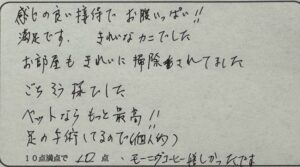 感じの良い接待で お腹いっぱい!!
満足です。 きれいなカニでした
お部屋もきれいに掃除されてました
ごちそう様でした
ベットならもっと最高!!
足の手術してるので(個人的)
10点満点で 10 点 ・モーニングコーヒー嬉しかったです